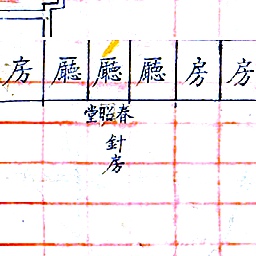 房廳廳廳房房
春昭堂
針房